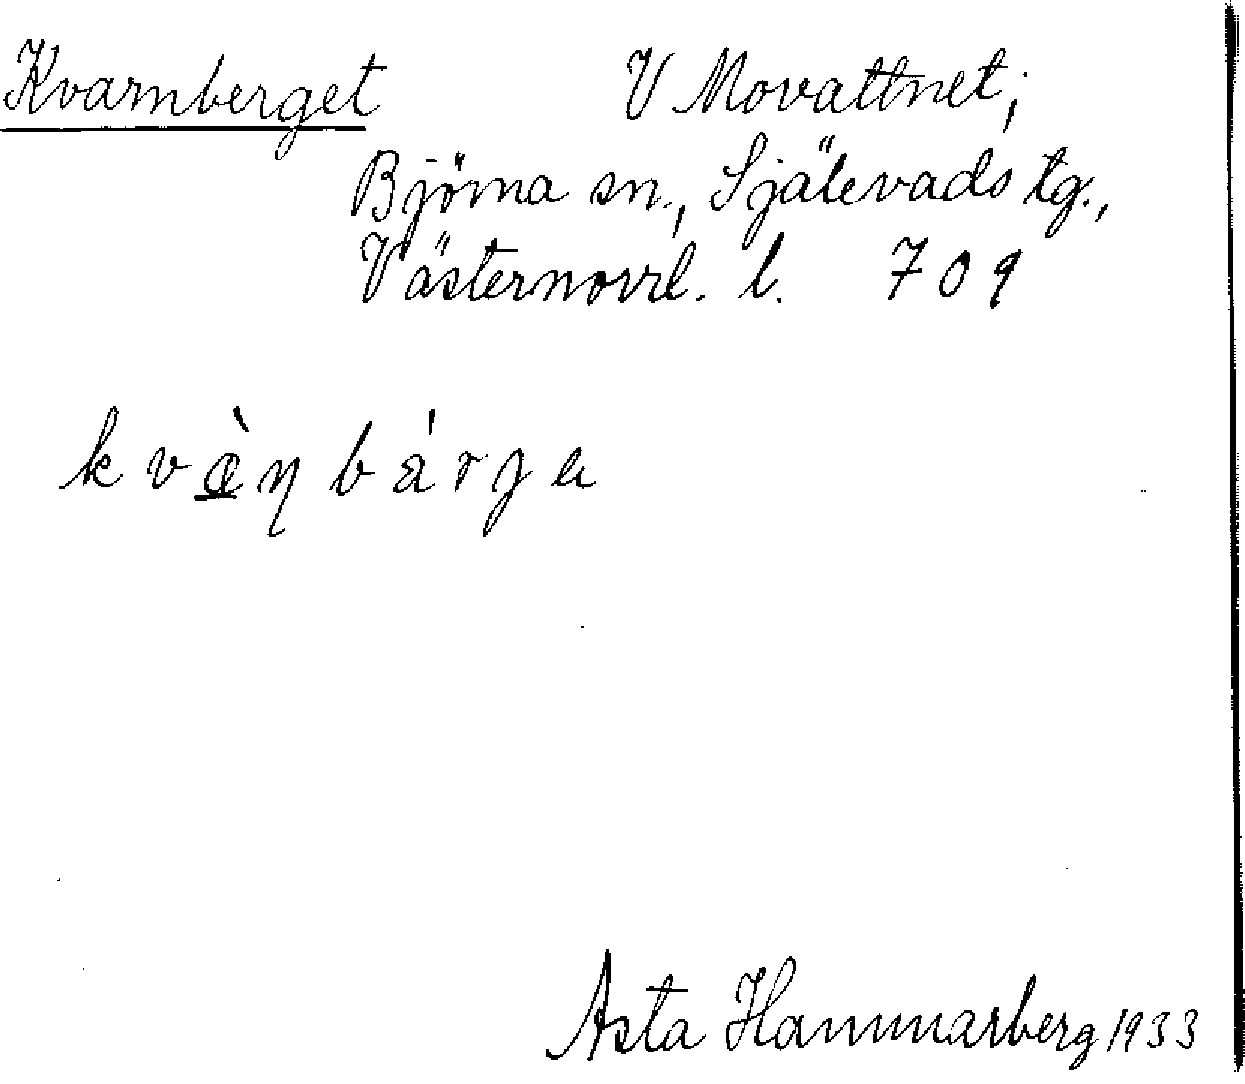 Kvarnberget V Movattnet;
Björna sn., Själevads tg.,
Västernorrl. l. 709
kvὰ̲ŋbárgɐ
Asta Hammarberg 1933